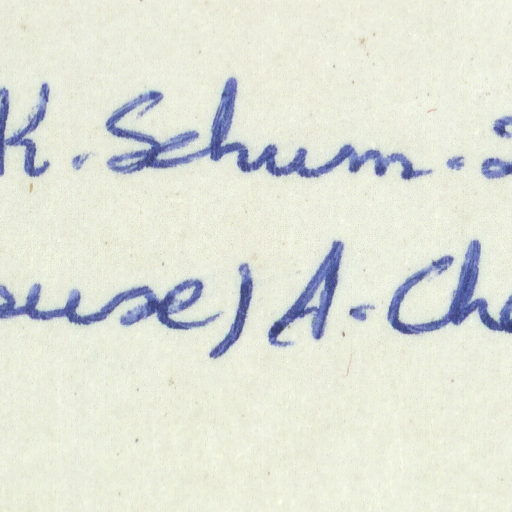 K. Schum. &
ouse) A. Che